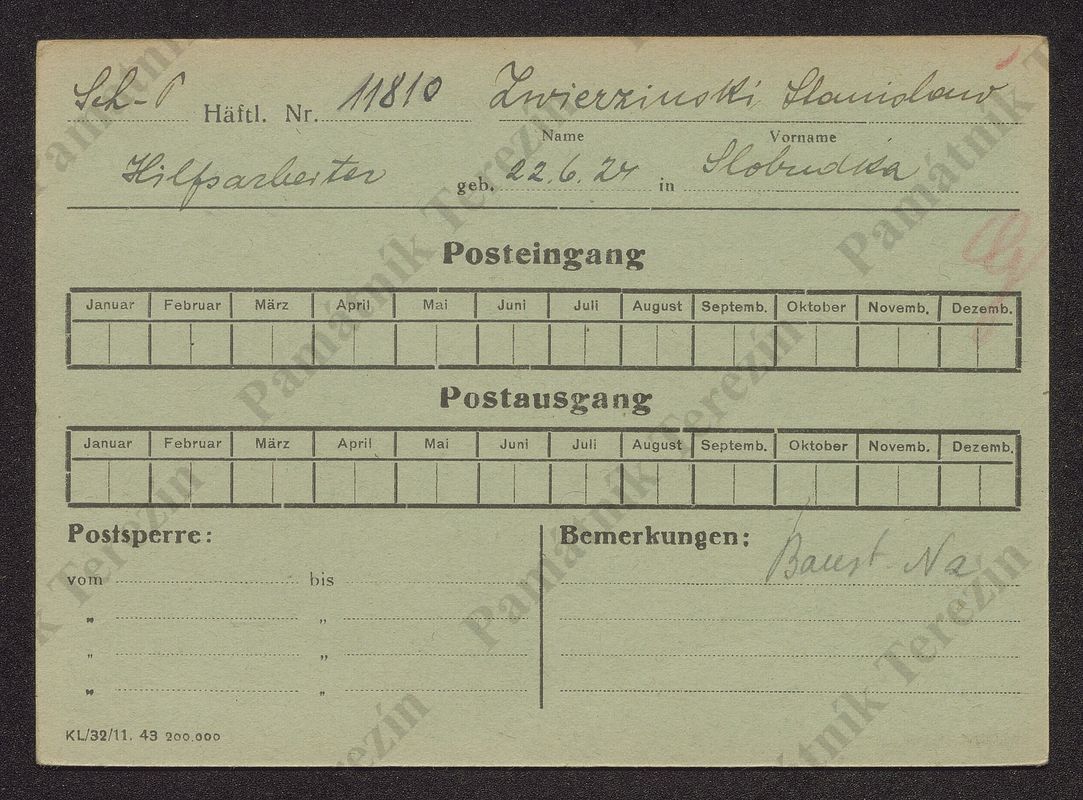 Sch-P Häftl. Nr. 11810 Zwierzinski Stanislaw
Name Vorname
Hilfsarbeiter geb. 22.6.24 in Slobudka
Posteingang
Januar Februar März April Mai Juni Juli August Septemb. Oktober Novemb. Dezemb.
Postausgang
Januar Februar März April Mai Juni Juli August Septemb. Oktober Novemb. Dezemb.
Postsperre: Bemerkungen:
vom bis Baust. Na
„ „
„ „
„ „
KL/32/11. 43 200.000
Památník Terezín